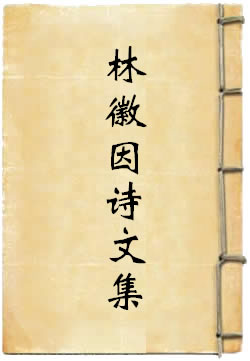 林徽因诗文集